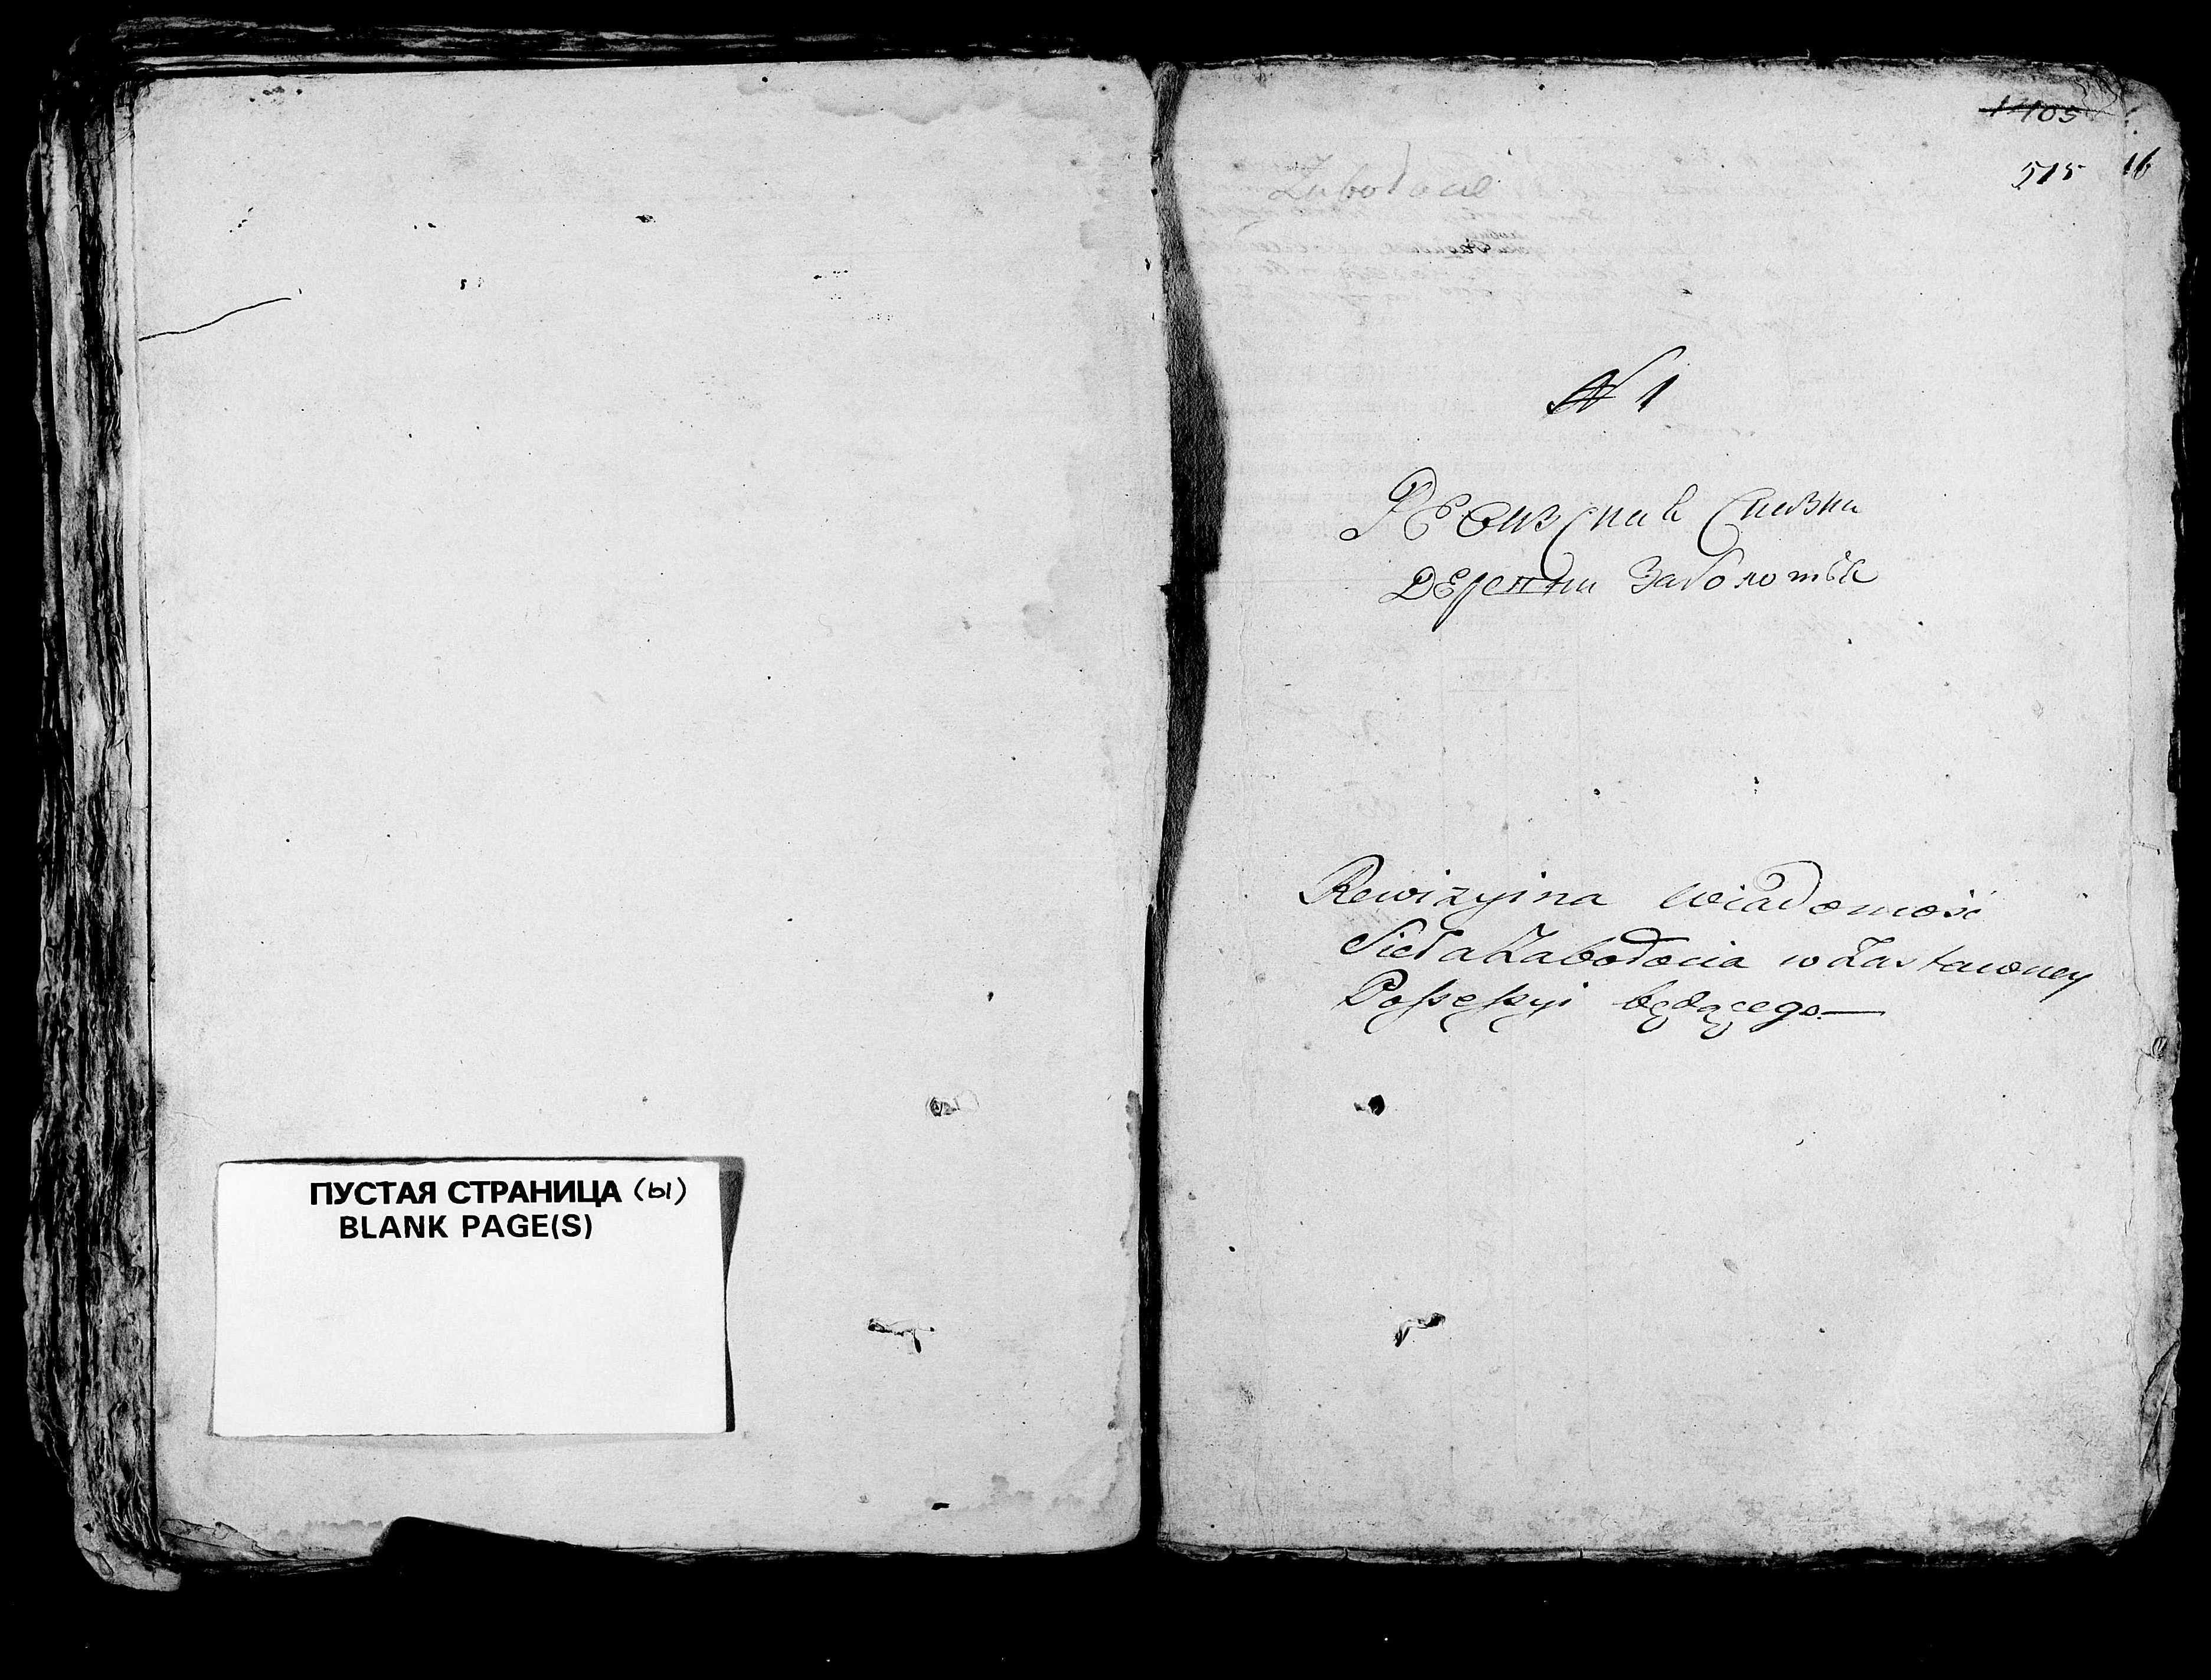 ПУСТАЯ СТРАНИЦА (Ы)
BLANK PAGE(S)
1105
515 16
Zabołocie
N 1
РЕвизски Сказки
ДЕревни Заболотья
Rewizyina wiadomość
Sieła Zabołocia w Zastawney
Possessyi będącego —